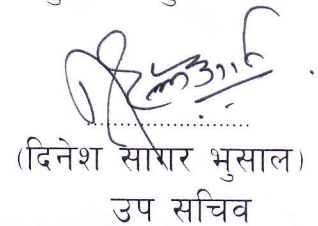 (दिनेश सागर भुसाल)
उप सचिव